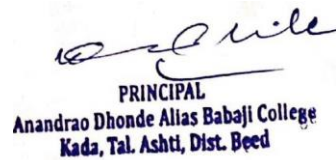 PRINCIPAL
Anandrao Dhonde Alias Babaji College
Kada, Tal. Ashti, Dist. Beed